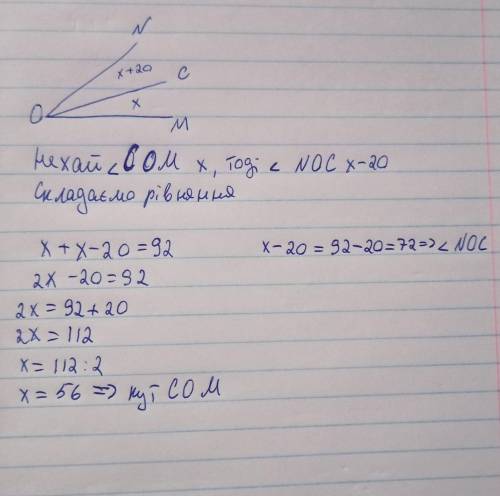 N
x+20
C
x
O
M
Нехай < COM x, тоді < NOC x-20
Складаємо рівняння
x + x - 20 = 92
x - 20 = 92 - 20 = 72 => < NOC
2x - 20 = 92
2x = 92 + 20
2x = 112
x = 112 : 2
x = 56 => кут COM